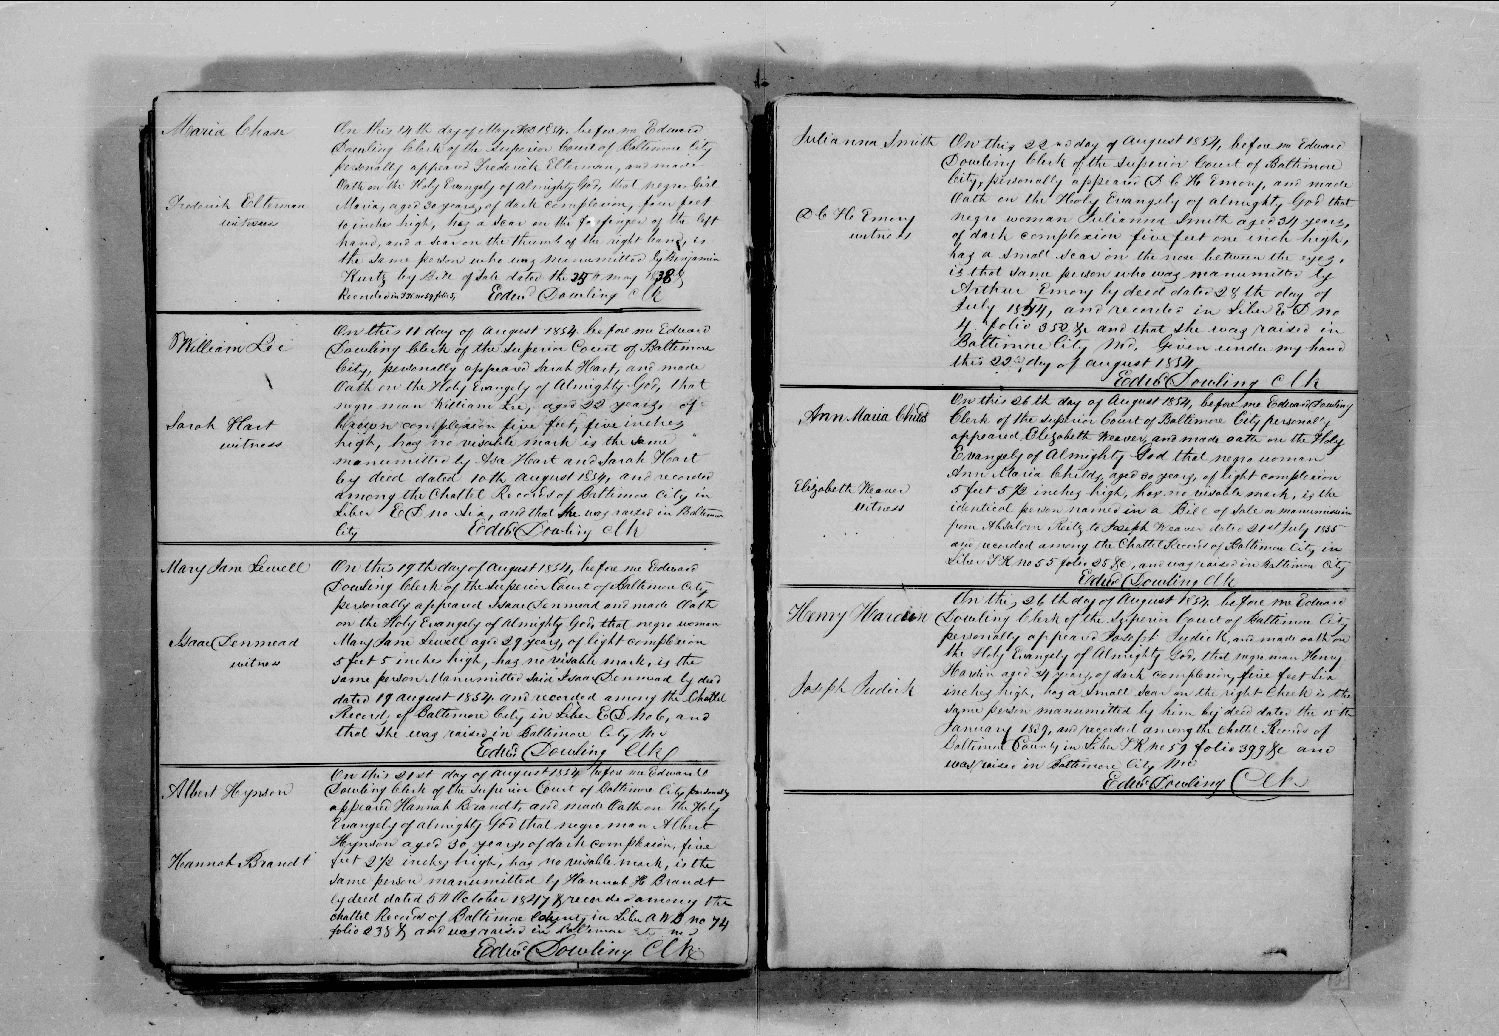 Maria Chase
Frederick Elterman
witness
On this 14th day of May AD 1854, before me Edward
Dowling Clerk of the Superior Court of Baltimore City
personally appeared Frederick Elterman, and made
Oath on the Holy Evangely of Almighty God, that negro Girl
Maria, aged 30 years, of dark complexion, four feet
10 inches high, has a scar on the forefinger of the left
hand, and a scar on the thumb of the right hand, is
the same person who was manumitted by Benjamin
Kurtz by Bill of Sale dated the 25th May 1838 &
Recorded in
Edwd Dowling Clk
William Lee
Sarah Hart
witness
On this 11 day of August 1854 before me Edward
Dowling Clerk of the Superior Court of Baltimore
City, personally appeared Sarah Hart, and made
Oath on the Holy Evangely of Almighty God, that
negro man William Lee, aged 22 years, of
brown complexion five feet, five inches
high, has no visable mark is the same
manumitted by Asa Hart and Sarah Hart
by deed dated 10th August 1854, and recorded
among the Chattel Records of Baltimore City in
Liber E D no Six, and that he was raised in Baltimore
City
Edwd Dowling Clk
Mary Jane Sewell
Isaac Denmead
witness
On this 19th day of August 1854, before me Edward
Dowling Clerk of the Superior Court of Baltimore City
personally appeared Isaac Denmead and made Oath
on the Holy Evangely of Almighty God, that negro woman
Mary Jane Sewell aged 29 years, of light complexion
5 feet 5 inches high, has no visable mark, is the
same person Manumitted Said Isaac Denmead by deed
dated 19 August 1854 and recorded among the Chattel
Records of Baltimore City in Liber E D no 6, and
that she was raised in Baltimore City Md
Edwd Dowling Clk
Albert Hynson
Hannah Brandt
On this 21st day of August 1854 before me Edward
Dowling Clerk of the Superior Court of Baltimore City personally
appeared Hannah Brandt, and made Oath on the Holy
Evangely of almighty God that negro man Albert
Hynson aged 30 years of dark complexion, five
feet 2 1/2 inches high, has no visable mark, is the
same person manumitted by Hannah H Brandt
by deed dated 5th October 1847 & recorded among the
chattel Records of Baltimore County in Liber A W B no 74
folio 238 & and was raised in Baltimore City Md
Edwd Dowling Clk
Julianna Smith
D C H Emory
witness
On this 22nd day of August 1854, before me Edward
Dowling Clerk of the Superior Court of Baltimore
City, personally appeared D C H Emory, and made
Oath on the Holy Evangely of almighty God that
negro woman Julianna Smith aged 34 years,
of dark complexion five feet one inch high,
has a small scar on the nose between the eyes,
is that same person who was manumitted by
Arthur Emory by deed dated 28th day of
July 1854, and recorded in Liber E D no
4 folio 350 &c and that she was raised in
Baltimore City Md. Given under my hand
this 22nd day of august 1854
Edwd Dowling Clk
Ann Maria Childs
Elizabeth Weaver
witness
On this 26th day of August 1854, before me Edward Dowling
Clerk of the Superior Court of Baltimore City personally
appeared Elizabeth Weaver, and made oath on the Holy
Evangely of Almighty God that negro woman
Ann Maria Childs, aged 20 years, of light complexion
5 feet 5 1/2 inches high, has no visable mark, is the
identical person named in a Bill of Sale or manumission
from Absalom Reitz to Joseph Weaver dated 21st July 1835
and recorded among the Chattel Records of Baltimore City in
Liber T K no 55 folio 25 &c, and was raised in Baltimore City
Edwd Dowling Clk
Henry Hardin
Joseph Judick
On this 26th day of August 1854 before me Edward
Dowling Clerk of the Superior Court of Baltimore City
personally appeared Joseph Judick, and made oath on
the Holy Evangely of Almighty God, that negro man Henry
Hardin aged 34 years, of dark complexion, five feet six
inches high, has a small scar on the right Cheek is the
same person manumitted by him by deed dated the 15th
January 1839, and recorded among the Chattel Records of
Baltimore County in Liber T K no 59 folio 399 &c and
was raised in Baltimore City Md
Edwd Dowling Clk